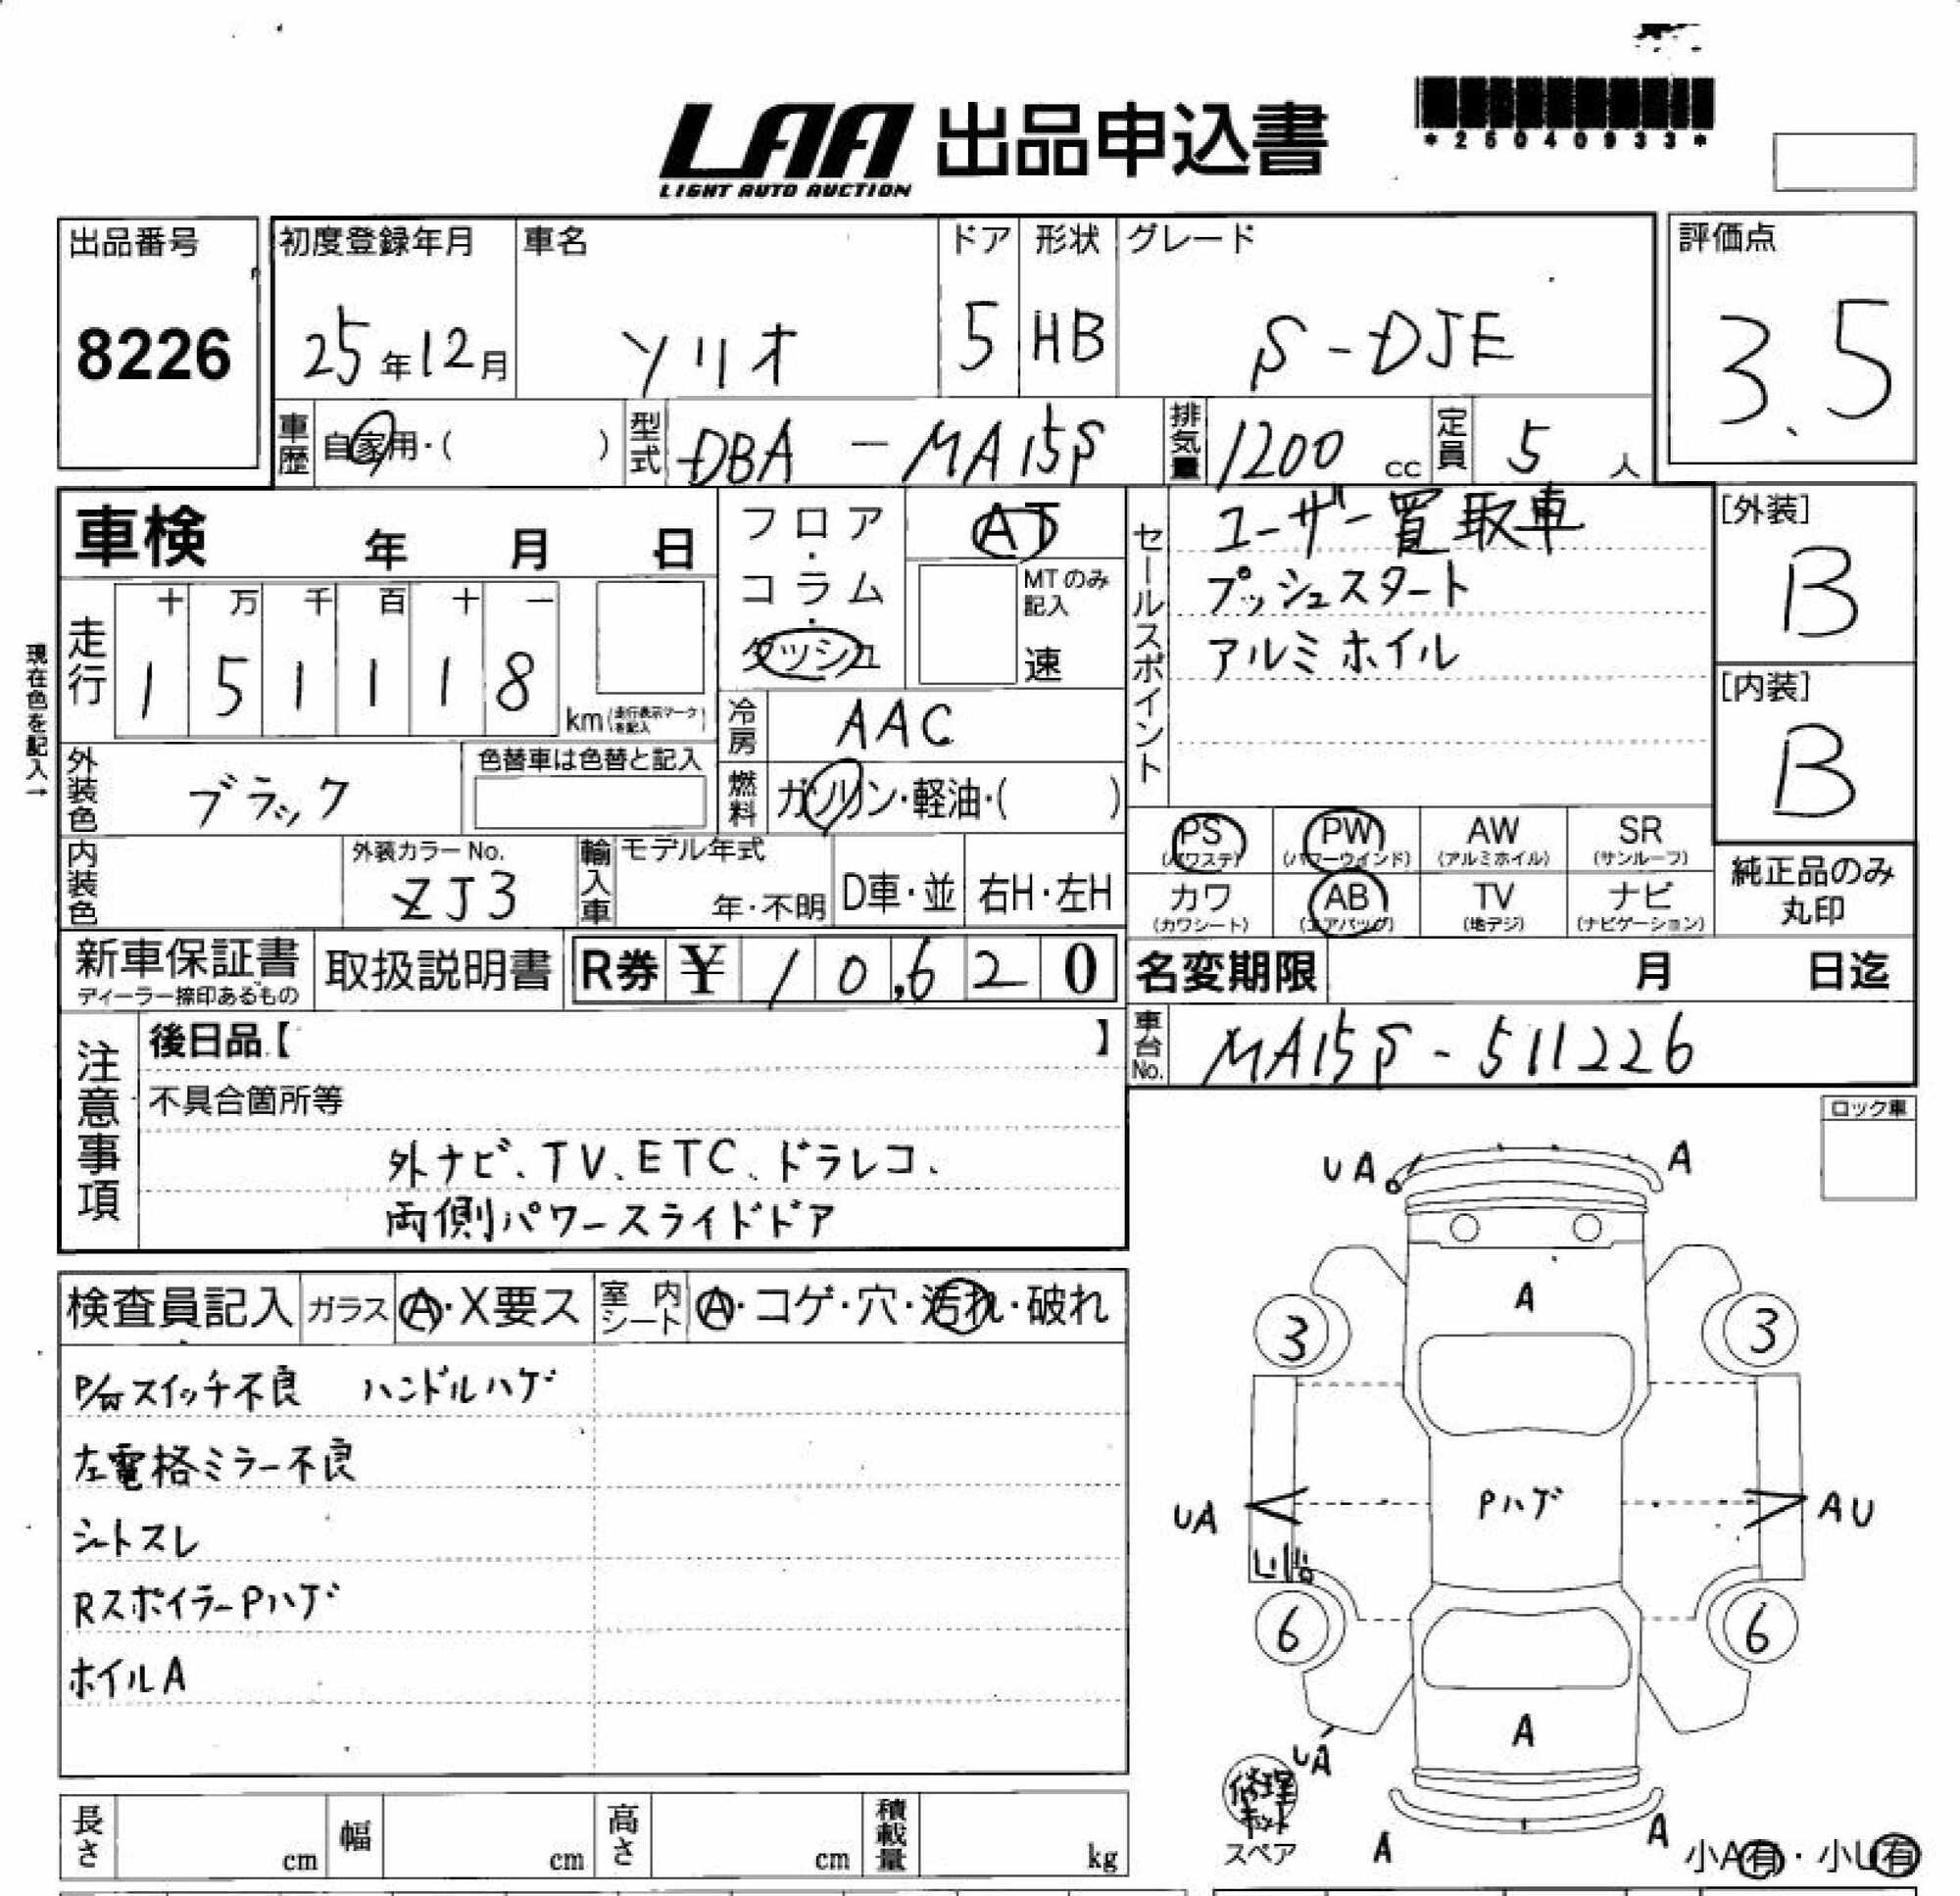 LAA 出品申込書
LIGHT AUTO AUCTION
*25040933*
出品番号
8226
初度登録年月
25年12月
車名
ソリオ
ドア
5
形状
HB
グレード
S-DJE
評価点
3.5
車歴
自家用・( )
型式
DBA-MA15S
排気量
1200cc
定員
5人
車検 年 月 日
フロア・コラム・ダッシュ
AT
MTのみ記入
速
セールスポイント
ユーザー買取車
プッシュスタート
アルミホイル
[外装]
B
[内装]
B
現在色を記入→
走行
十 万 千 百 十 一
1 5 1 1 1 8
km(走行表示マークを記入)
冷房
AAC
燃料
ガソリン・軽油・( )
外装色
ブラック
色替車は色替と記入
内装色
外装カラーNo.
ZJ3
輸入車
モデル年式
年・不明
D車・並
右H・左H
PS (パワステ)
PW (パワーウインド)
AW (アルミホイル)
SR (サンルーフ)
カワ (カワシート)
AB (エアバッグ)
TV (地デジ)
ナビ (ナビゲーション)
純正品のみ丸印
新車保証書
ディーラー捺印あるもの
取扱説明書
R券 ¥10,620
名変期限 月 日迄
車台No.
MA15S-511226
注意事項
後日品【 】
不具合箇所等
外ナビ、TV、ETC、ドラレコ、
両側パワースライドドア
ロック車
検査員記入
ガラス
A・X要ス
室内シート
A・コゲ・穴・汚れ・破れ
P/Wスイッチ不良 ハンドルハゲ
左電格ミラー不良
シートスレ
RスポイラーPハゲ
ホイルA
UA
A
A
3
3
Pハゲ
UA
AU
6
6
A
UA
修理キット
スペア
A
A
小A有・小U有
長さ cm
幅 cm
高さ cm
積載量 kg